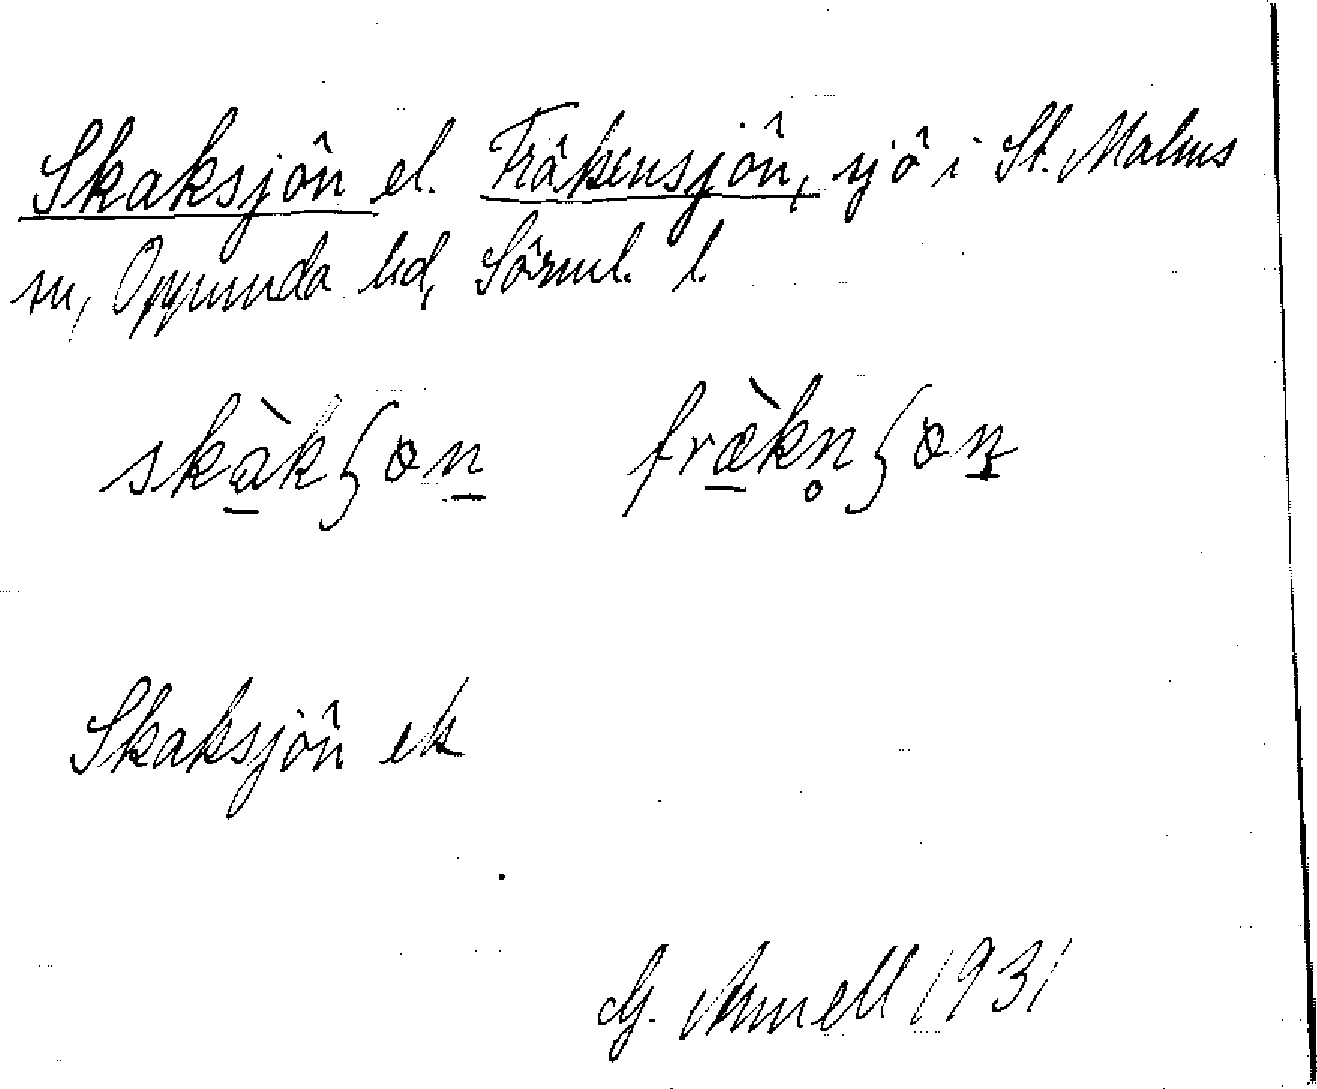 Skaksjön el. Fräkensjön, sjö i St. Malms
sn, Oppunda hd, Sörml. l.
skàkʃɷn fræ̀kn̥ʃɷn
Skaksjön ek
G. Armell 1931